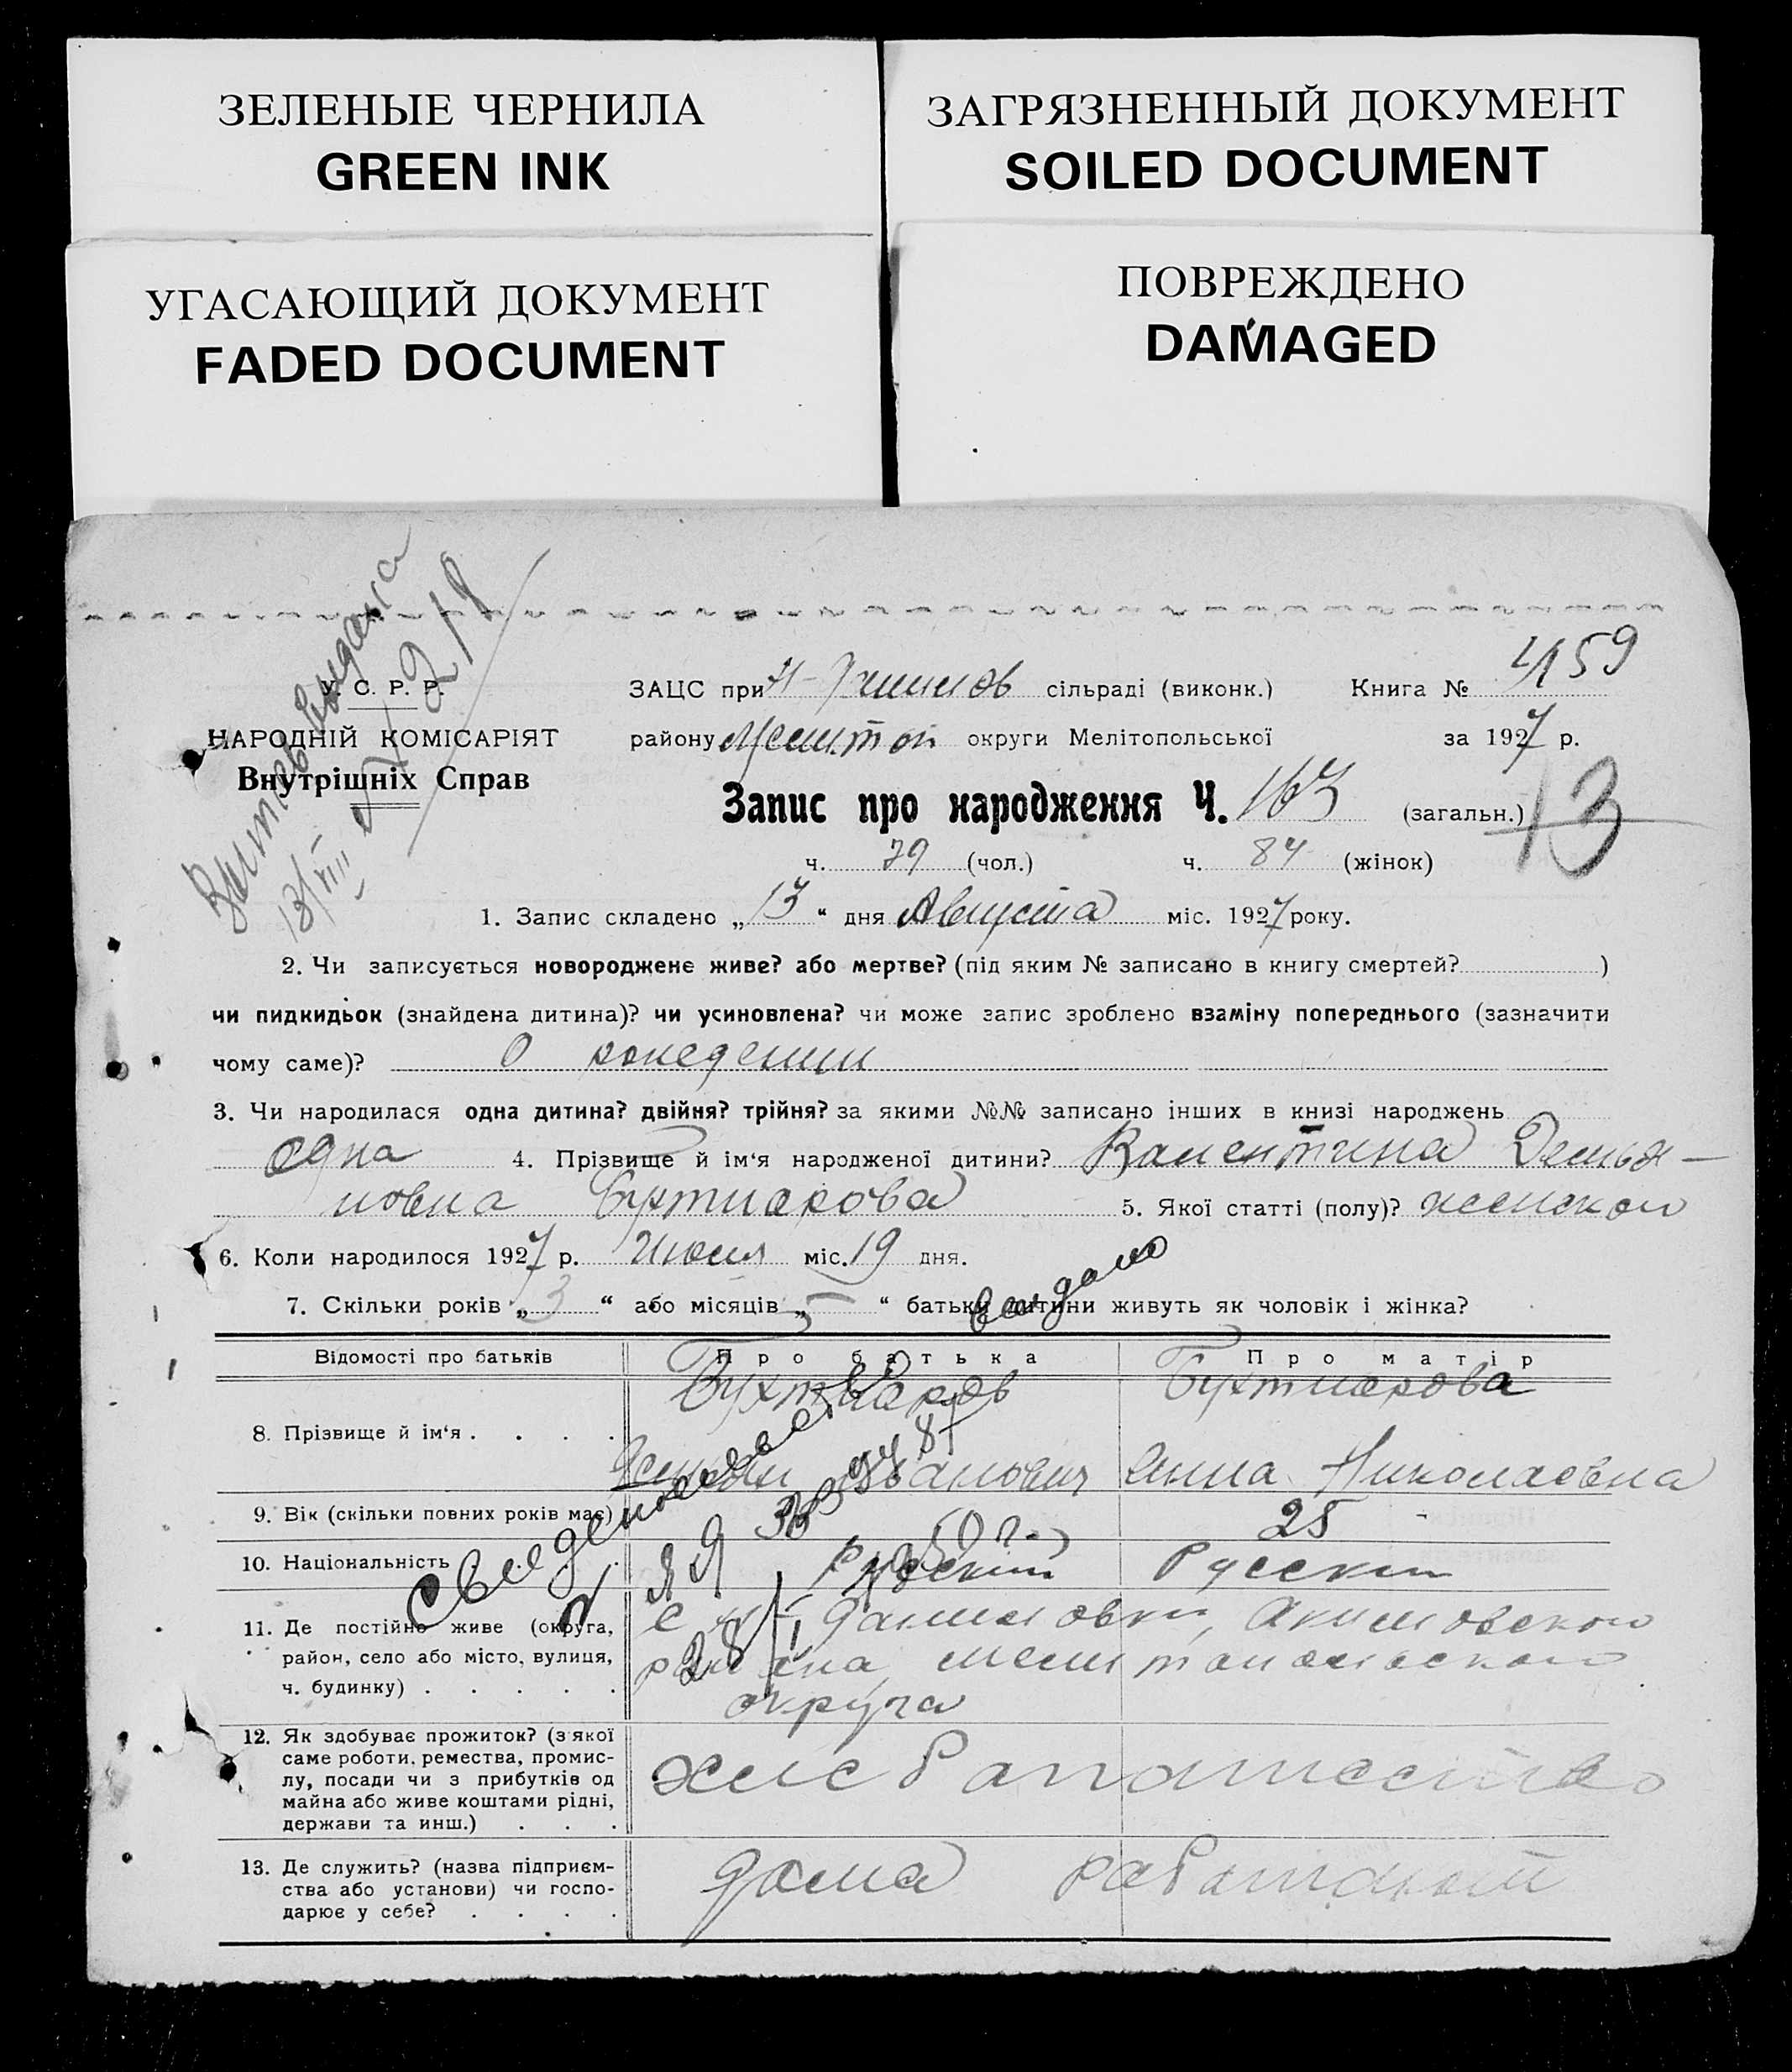 ЗЕЛЕНЫЕ ЧЕРНИЛА
GREEN INK
ЗАГРЯЗНЕННЫЙ ДОКУМЕНТ
SOILED DOCUMENT
УГАСАЮЩИЙ ДОКУМЕНТ
FADED DOCUMENT
ПОВРЕЖДЕНО
DAMAGED
выдана
У. С. Р. Р.
НАРОДНІЙ КОМІСАРІЯТ
Внутрішніх Справ
ЗАЦС при сільраді (виконк.) Книга № 459
району Мелитоп округи Мелітопольської за 1927 р.
Запис про народження Ч. 163 (загальн.) 13
ч. 79 (чол.) ч. 84 (жінок)
1. Запис складено „13“ дня Августа міс. 1927 року.
2. Чи записується новороджене живе? або мертве? (під яким № записано в книгу смертей? )
чи пидкидьок (знайдена дитина)? чи усиновлена? чи може запис зроблено взаміну попереднього (зазначити
чому саме)? О рождении
3. Чи народилася одна дитина? двійня? трійня? за якими №№ записано інших в книзі народжень
одна 4. Прізвище й ім‘я народженої дитини? Валентина Демья-
новна Бухтиарова 5. Якої статті (полу)? женской
6. Коли народилося 1927 р. Июля міс. 19 дня.
7. Скільки років „3“ або місяців „—“ батьки дитини живуть як чоловік і жінка?
выдано
Відомості про батьків Про батька Про матір
8. Прізвище й ім‘я . . . . Бухтиаров Бухтиарова
Демьян Иванович Анна Николаевна
9. Вік (скільки повних років має) 38 25
10. Національність Русский Русския
11. Де постійно живе (округа,
район, село або місто, вулиця,
ч. будинку) . . . . .
с Даниловки, Акимовского
района мелитопольского
округа
12. Як здобуває прожиток? (з якої
саме роботи, ремества, промис-
лу, посади чи з прибутків од
майна або живе коштами рідні,
держави та инш.) . . .
хлебопашество
13. Де служить? (назва підприєм-
ства або установи) чи госпо-
дарює у себе? . . . .
дома работают